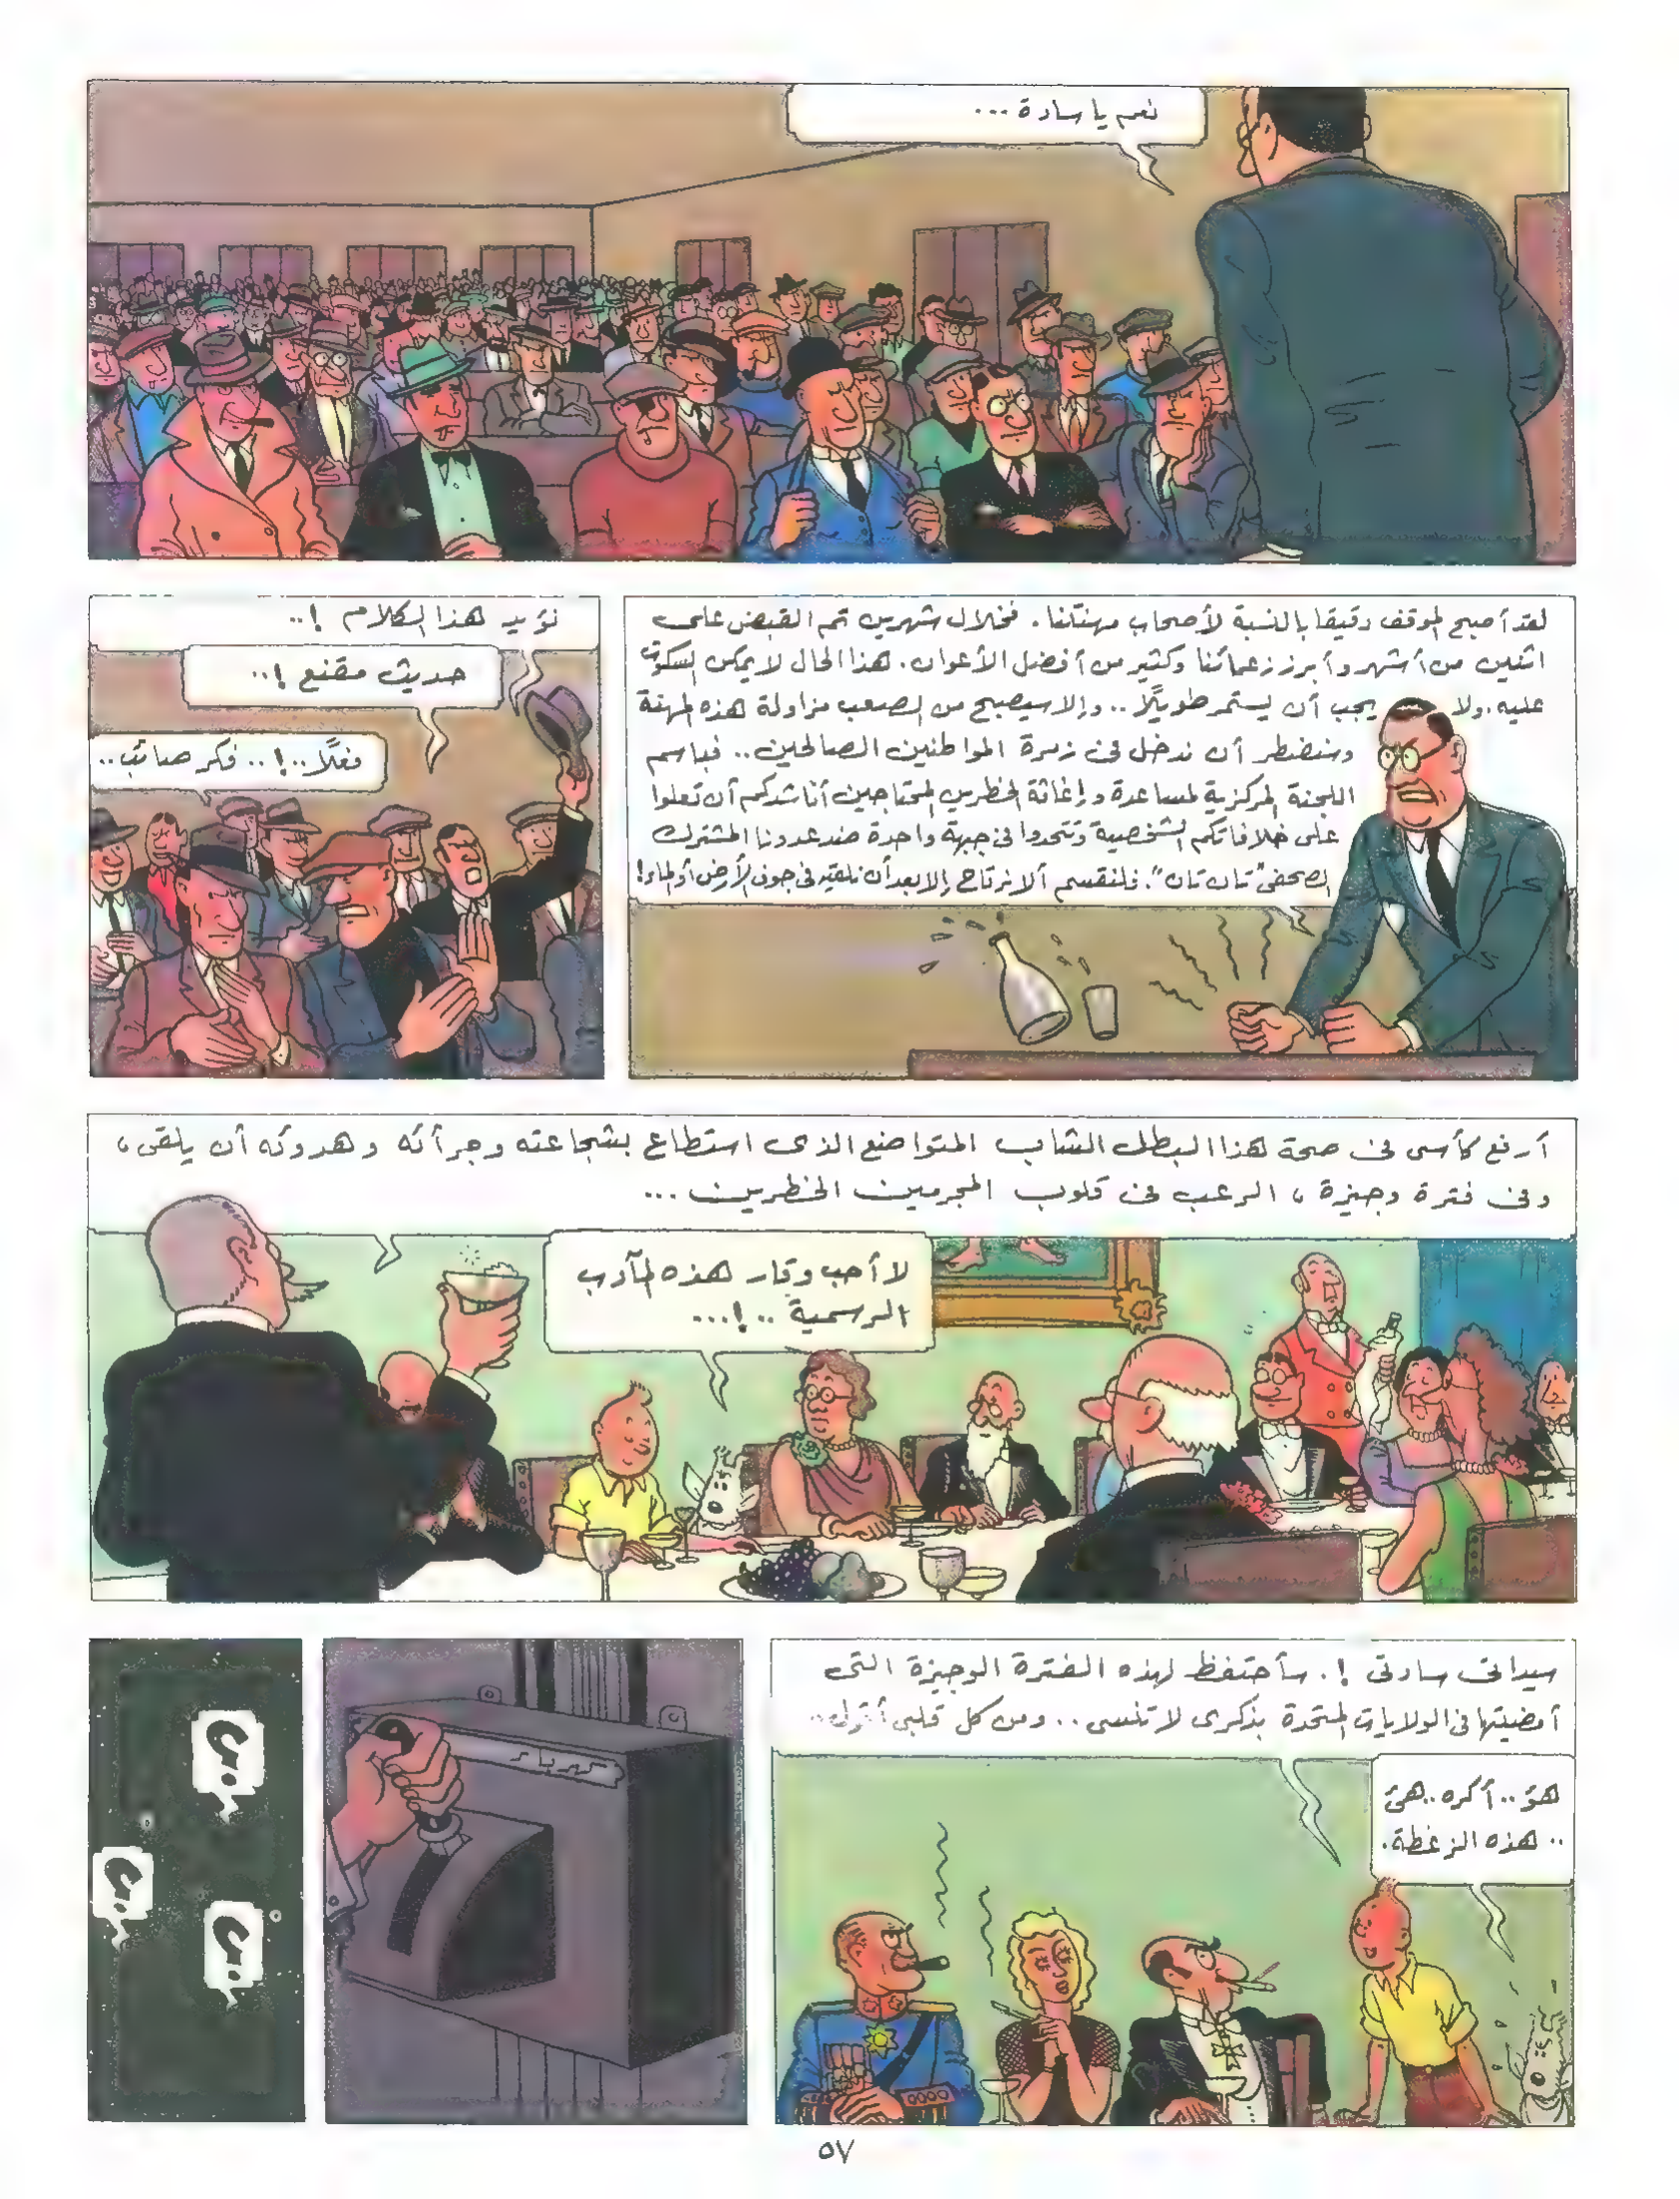 نعم يا سادة ...
لقد أصبح الموقف دقيقا بالنسبة لأصحاب مهنتنا . فخلال شهرين تم القبض على
اثنين من أشهر وأبرز زعمائنا وكثير من أفضل الأعوان . هذا الحال لا يمكن السكوت
عليه . ولا يجب أن يستمر طويلًا .. وإلا سيصبح من الصعب مزاولة هذه المهنة
وسنضطر أن ندخل فى زمرة المواطنين الصالحين .. فباسم
اللجنة المركزية لمساعدة وإغاثة الخطرين المحتاجين أناشدكم أن تعلوا
على خلافاتكم الشخصية وتتحدوا فى جبهة واحدة ضد عدونا المشترك
الصحفى "تان تان" . فلنقسم ألا نرتاح إلا بعد أن نلقيه فى جوف الأرض أو الماء !
نؤيد هذا الكلام ! ..
حديث مقنع ! ..
فعلًا .. ! .. فكر صائب ..
أرفع كأسى فى صحة هذا البطل الشاب المتواضع الذى استطاع بشجاعته وجرأته وهدوئه أن يلقى ،
وفى فترة وجيزة ، الرعب فى قلوب المجرمين الخطرين ...
لا أحب وقار هذه المآدب
الرسمية .. ! ...
سيداتى سادتى ! . سأحتفظ لهذه الفترة الوجيزة التى
أمضيتها فى الولايات المتحدة بذكرى لا تنسى .. ومن كل قلبى أقول ..
هؤ .. أكره .. هئ
.. هذه الزغطة .
كهرباء
٥٧